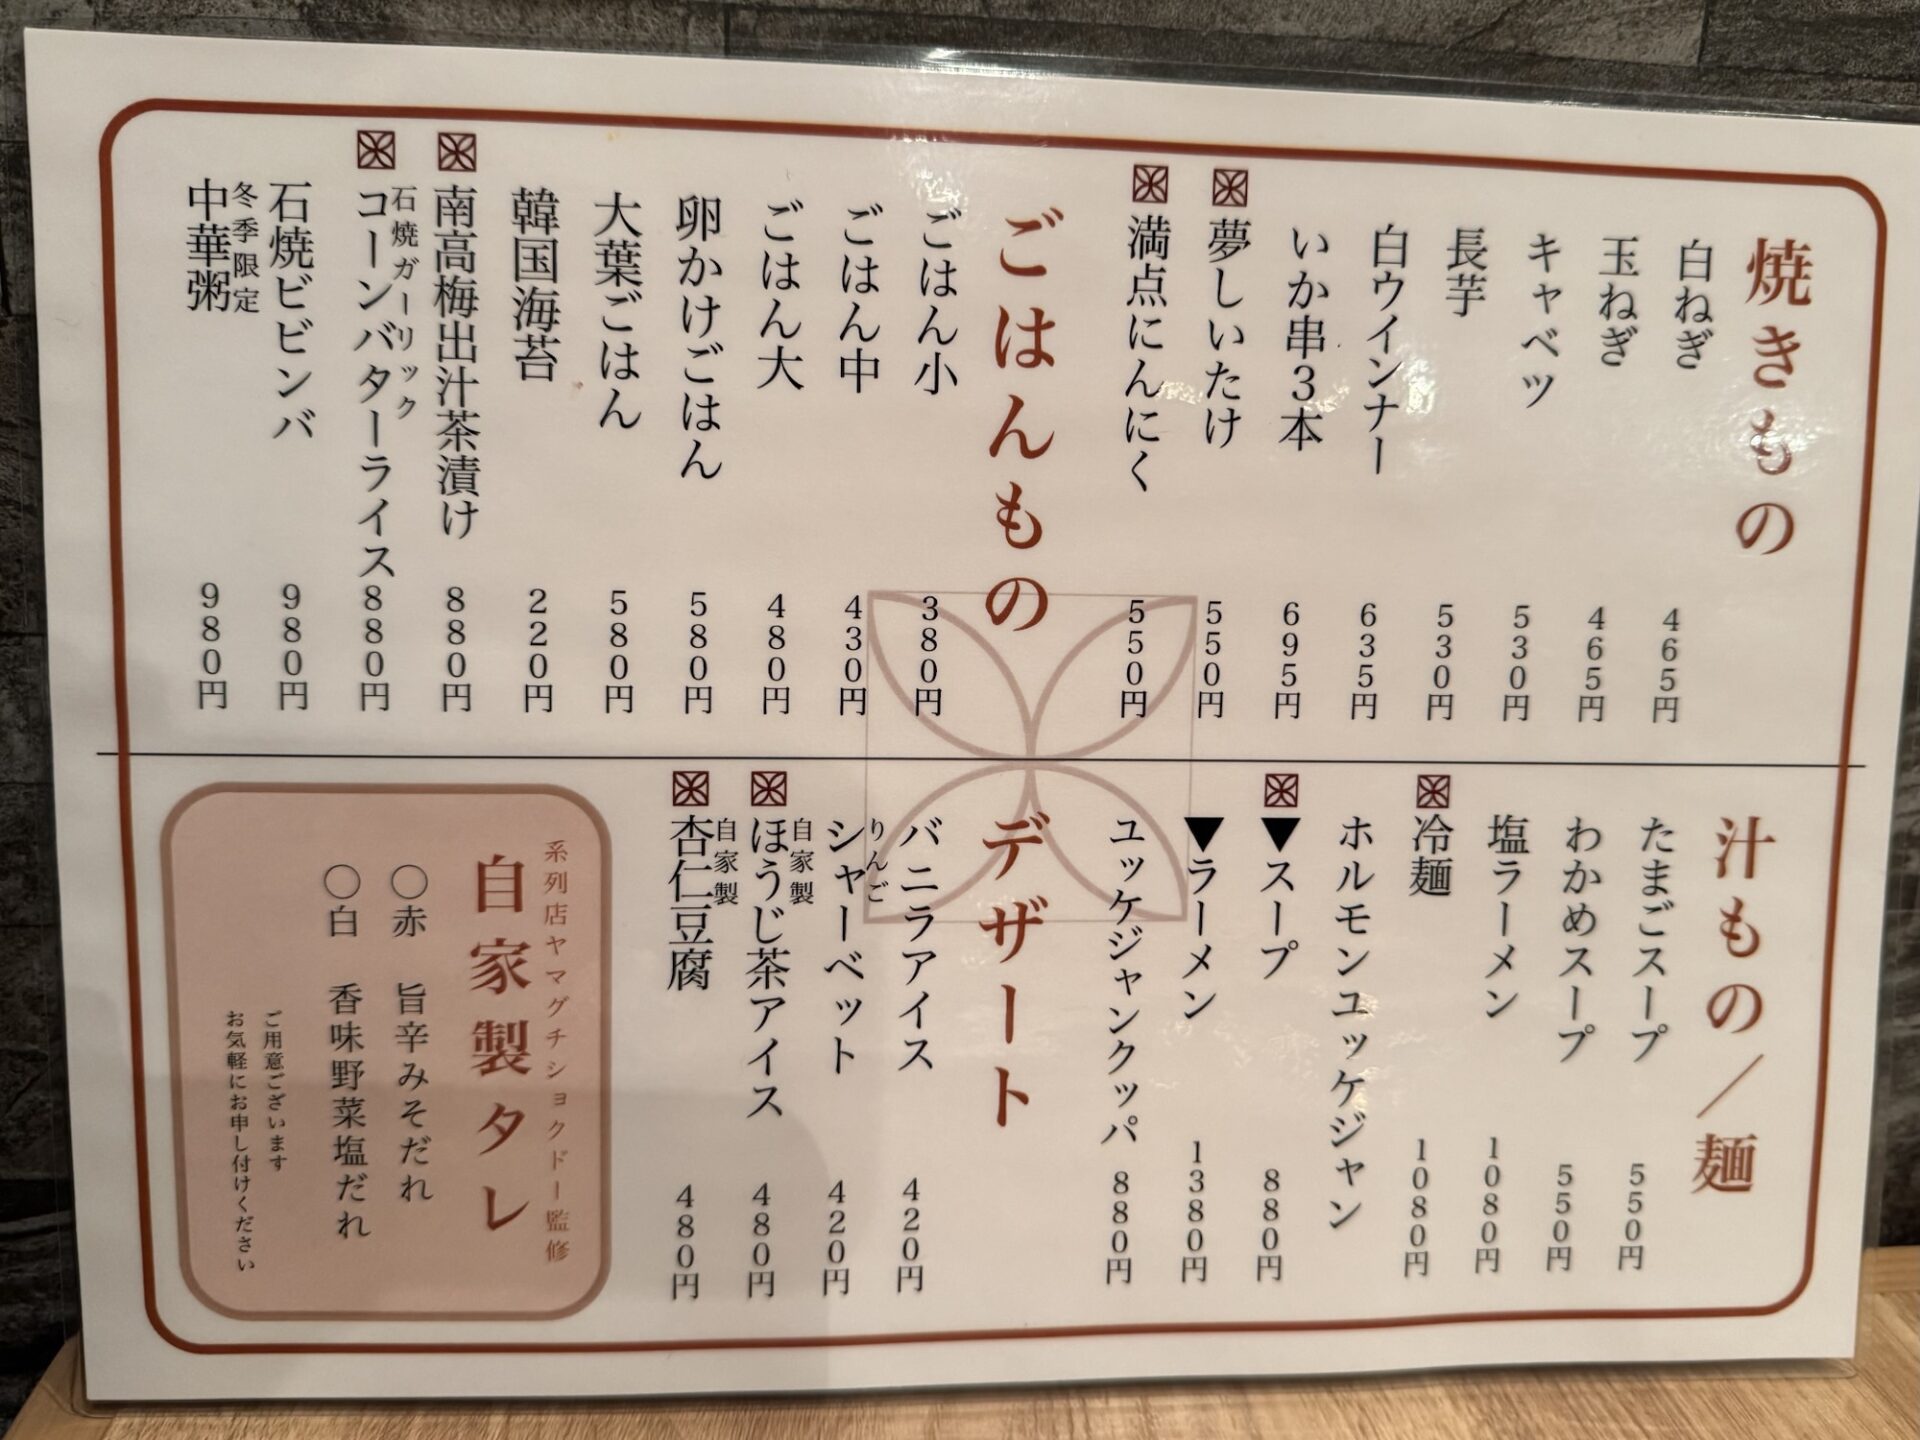 焼きもの
白ねぎ 465円
玉ねぎ 465円
キャベツ 530円
長芋 530円
白ウインナー 635円
いか串3本 695円
夢しいたけ 550円
満点にんにく 550円
ごはんもの
ごはん小 380円
ごはん中 430円
ごはん大 480円
卵かけごはん 580円
大葉ごはん 580円
韓国海苔 220円
南高梅出汁茶漬け 880円
石焼ガーリック
コーンバターライス 880円
石焼ビビンバ 980円
冬季限定
中華粥 980円
汁もの/麺
たまごスープ 550円
わかめスープ 550円
塩ラーメン 1080円
冷麺 1080円
ホルモンユッケジャン
▼スープ 880円
▼ラーメン 1380円
ユッケジャンクッパ 880円
デザート
バニラアイス 420円
りんご
シャーベット 420円
自家製
ほうじ茶アイス 480円
自家製
杏仁豆腐 480円
系列店ヤマグチショクドー監修
自家製タレ
〇赤 旨辛みそだれ
〇白 香味野菜塩だれ
ご用意ございます
お気軽にお申し付けください